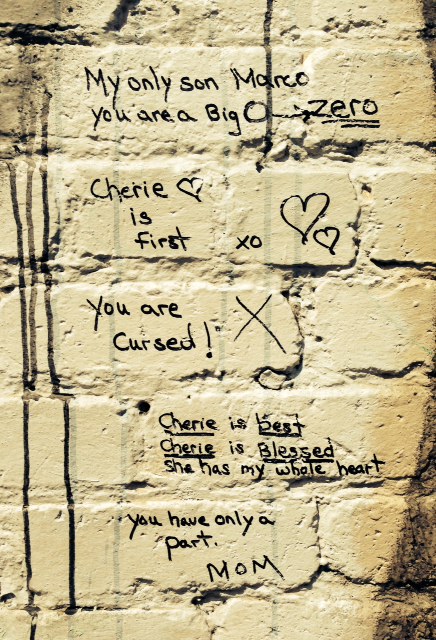 My only son Marco
you are a Big O → zero
Cherie ♡
is
first xo
You are
Cursed! X
Cherie is best
Cherie is Blessed
She has my whole heart
you have only a
part.
MOM